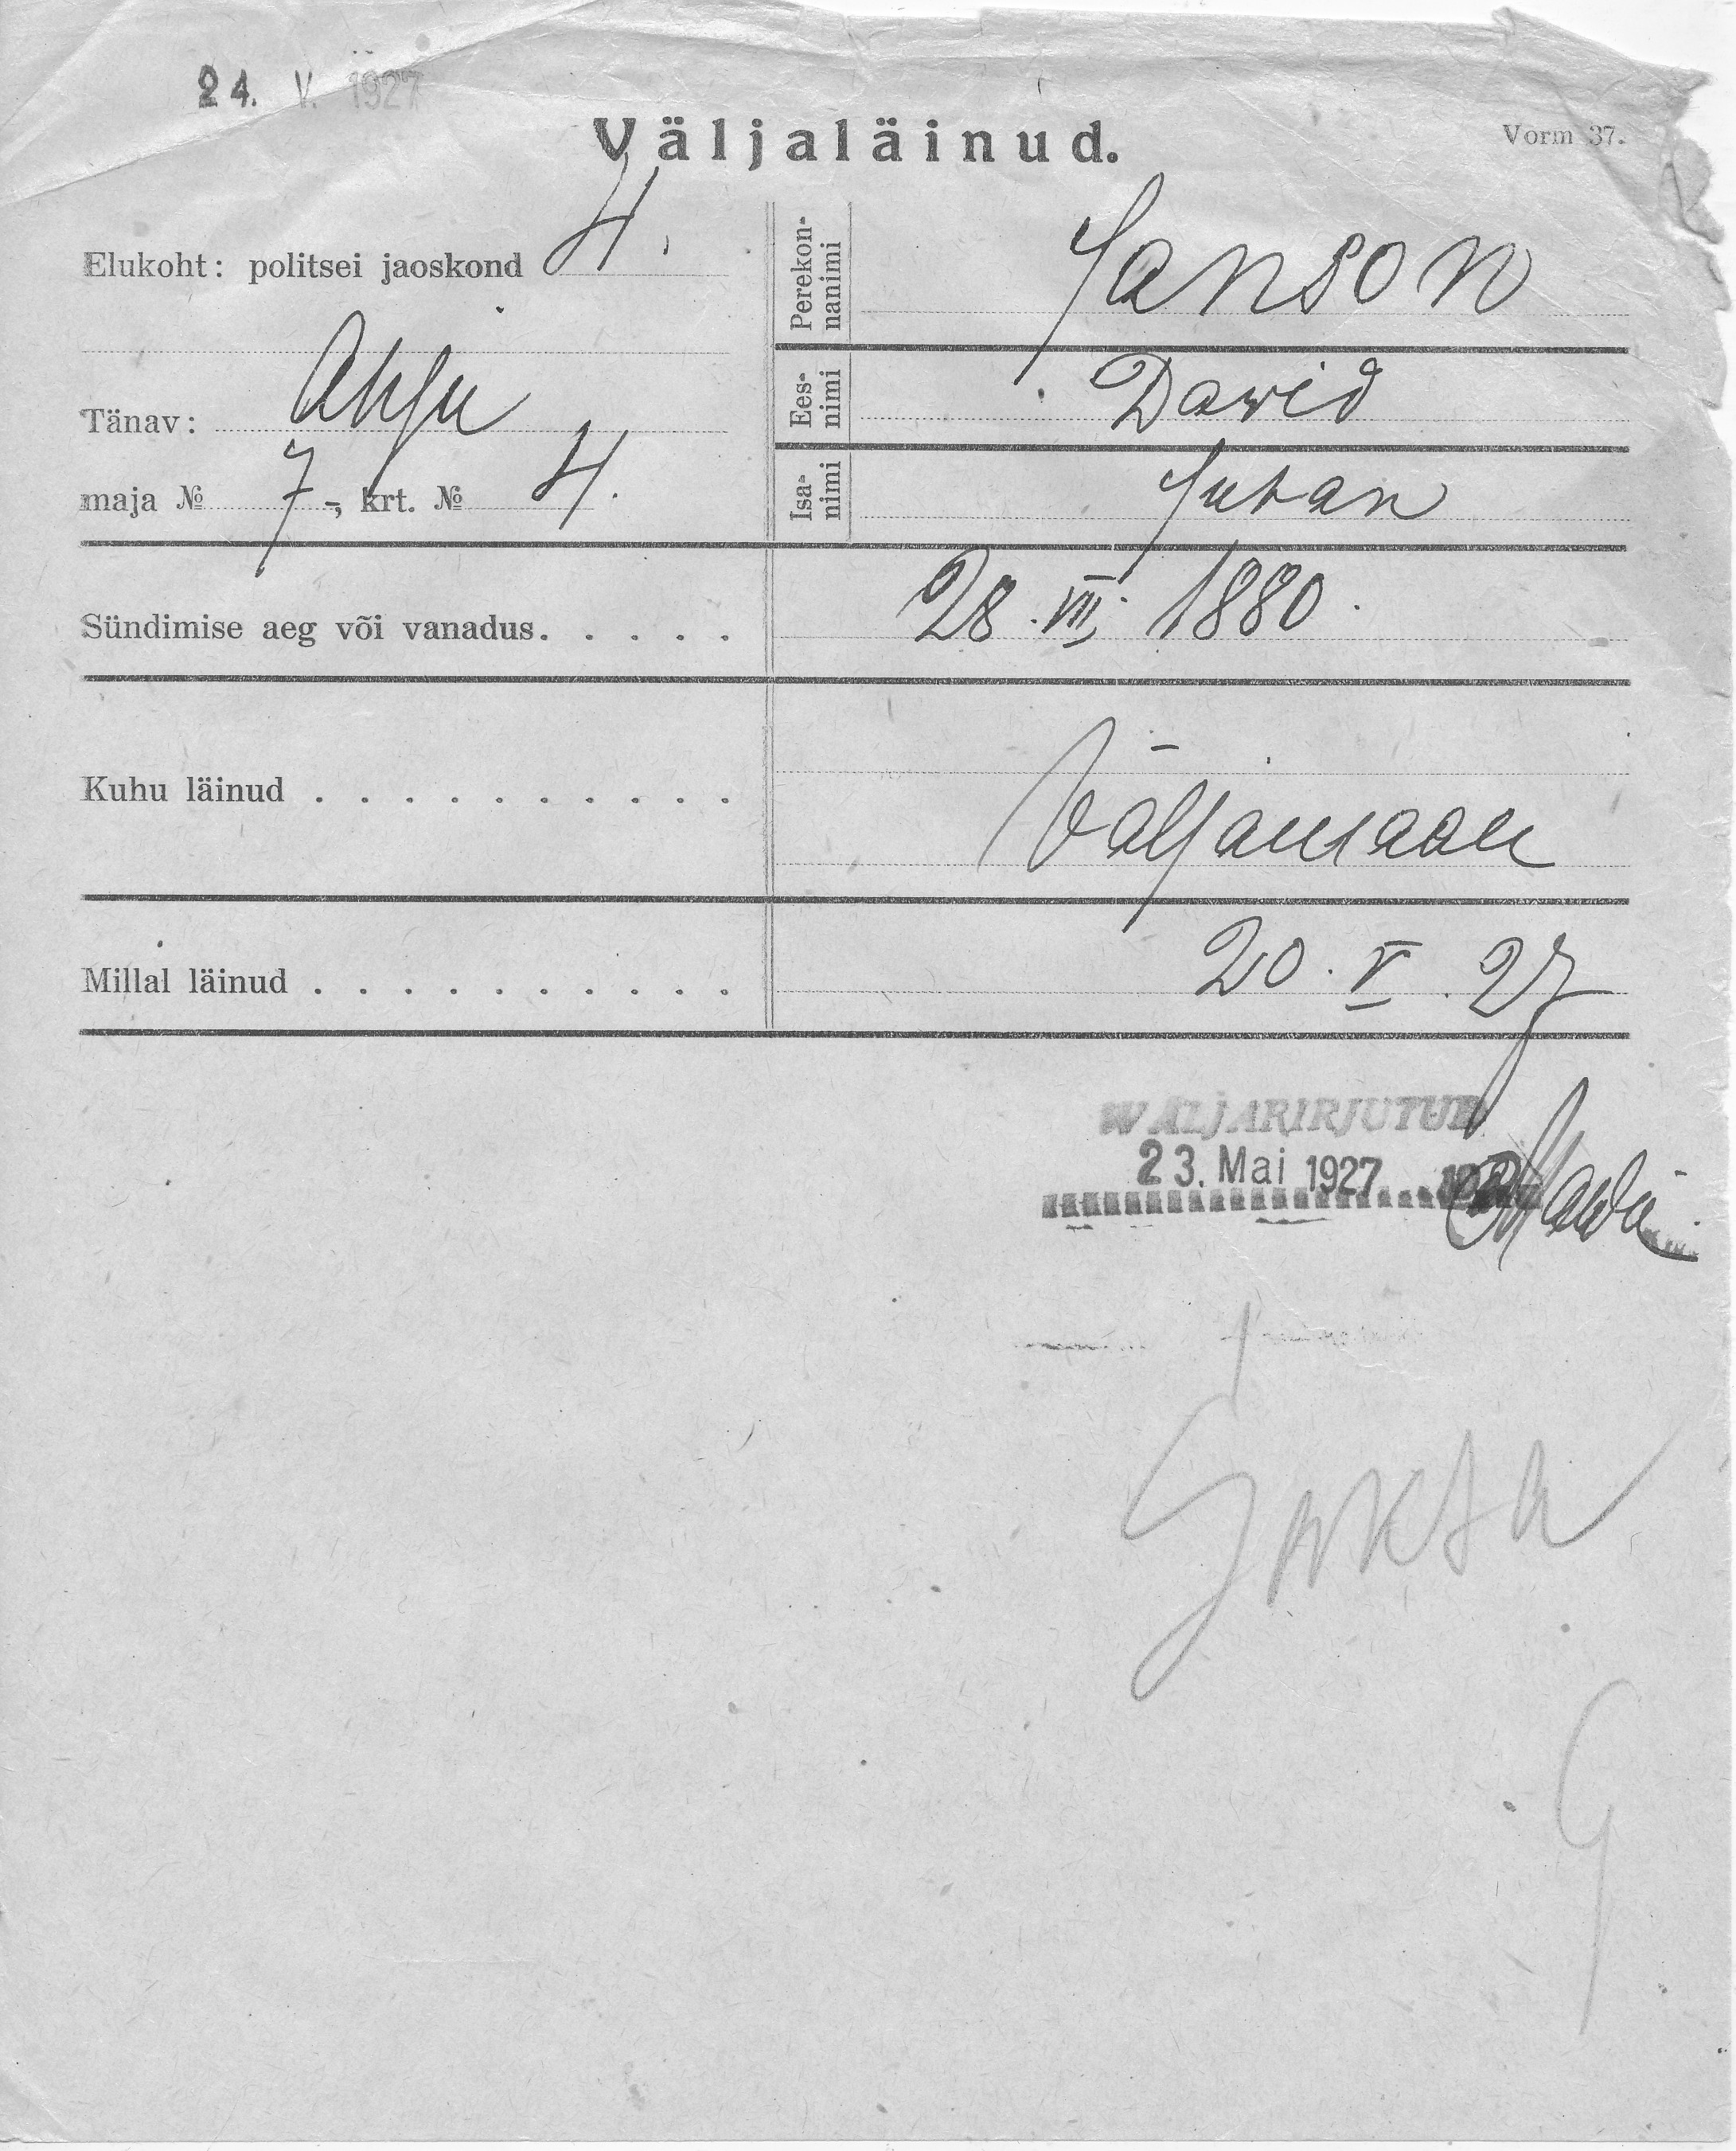 24. V. 1927
Väljaläinud.
Vorm 37.
Elukoht: politsei jaoskond 4.
Tänav: Ahju
maja № 7-, krt. № 4.
Perekon-
nanimi
Janson
Ees-
nimi
Dawid
Isa-
nimi
Juhan
Sündimise aeg või vanadus. . . . . 28. VII. 1880.
Kuhu läinud . . . . . . . . . . Väljamaale
Millal läinud . . . . . . . . . . 20. V. 27
WÄLJAKIRJUTUD
23. Mai 1927